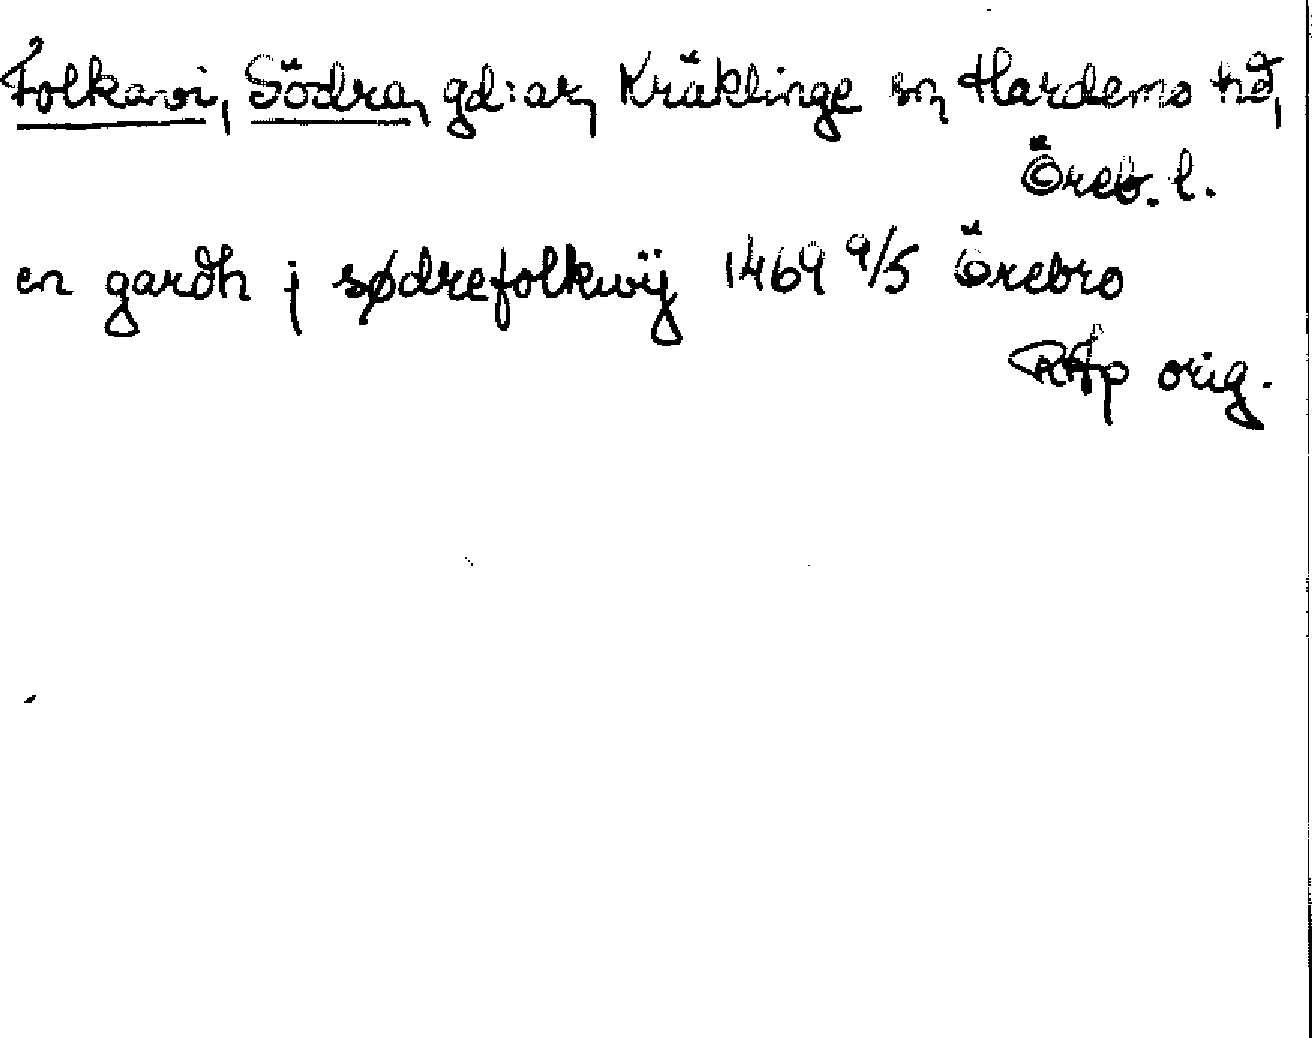 Folkavi, Södra, gd:ar, Kräklinge sn, Hardemo hd,
Öreb. l.
en gardh j sødrefolkwij 1469 9/5 Örebro
RAp orig.